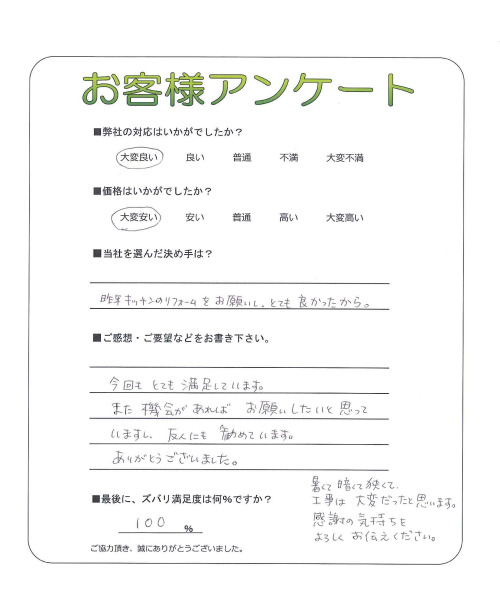 お客様アンケート
■弊社の対応はいかがでしたか？
大変良い 良い 普通 不満 大変不満
■価格はいかがでしたか？
大変安い 安い 普通 高い 大変高い
■当社を選んだ決め手は？
昨年キッチンのリフォームをお願いし、とても良かったから。
■ご感想・ご要望などをお書き下さい。
今回もとても満足しています。
また機会があればお願いしたいと思って
いますし、友人にも勧めています。
ありがとうございました。
■最後に、ズバリ満足度は何%ですか？
100 %
暑くて暗くて狭くて、
工事は大変だったと思います。
感謝の気持ちを
よろしくお伝えください。
ご協力頂き、誠にありがとうございました。